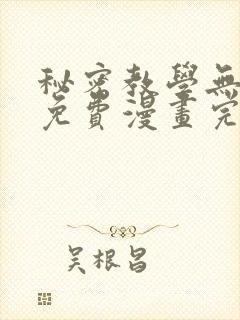 秘密教學無
免費漫畫完
吴根昌